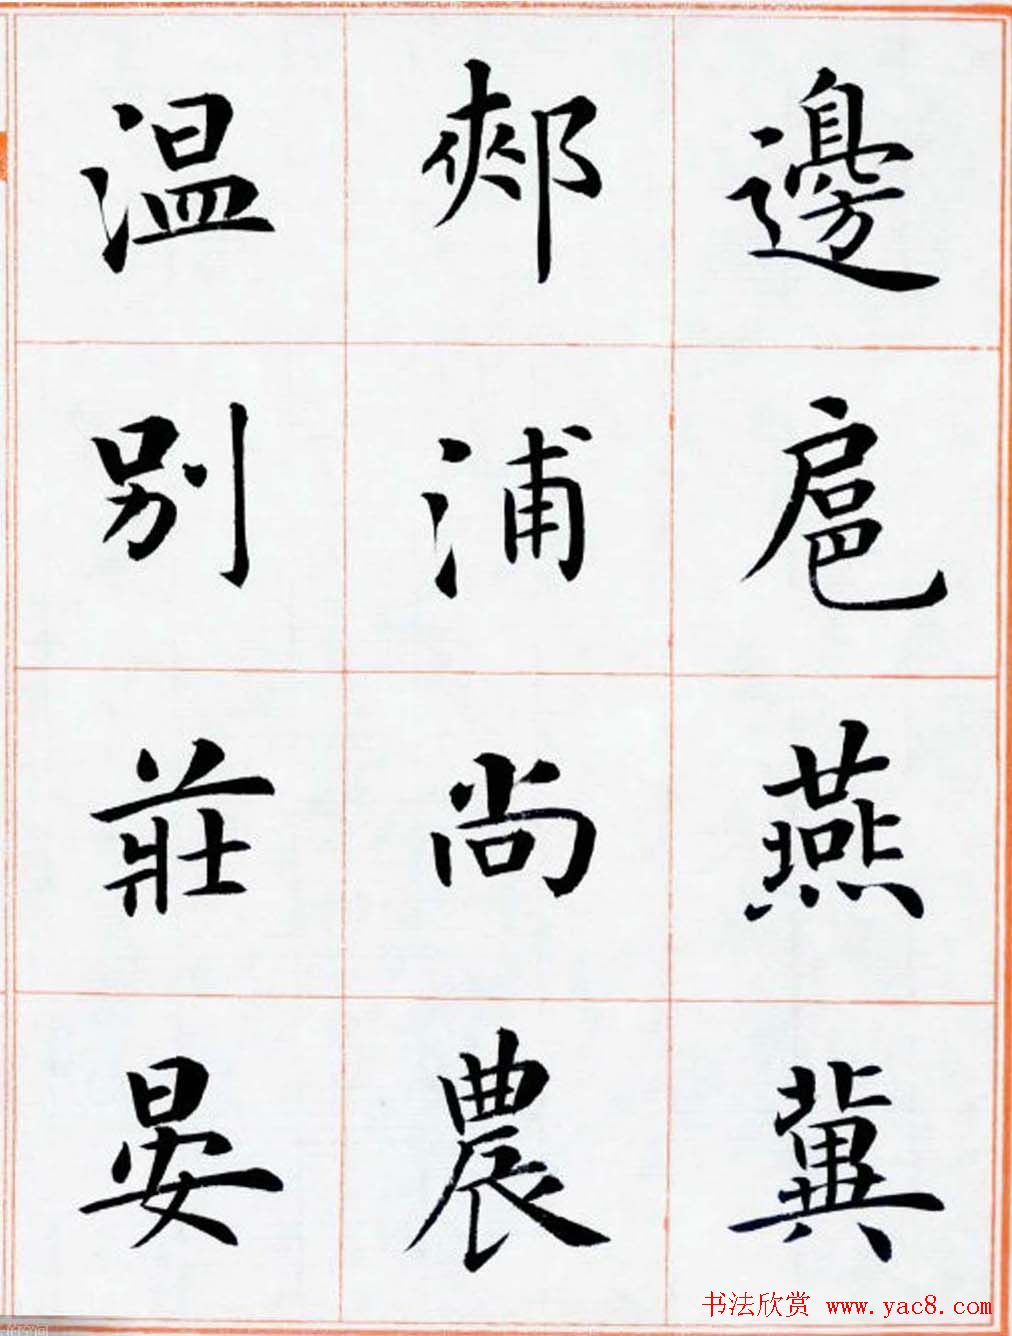 邊扈燕冀
郟浦尚農
温别莊晏
书法欣赏 www.yac8.com